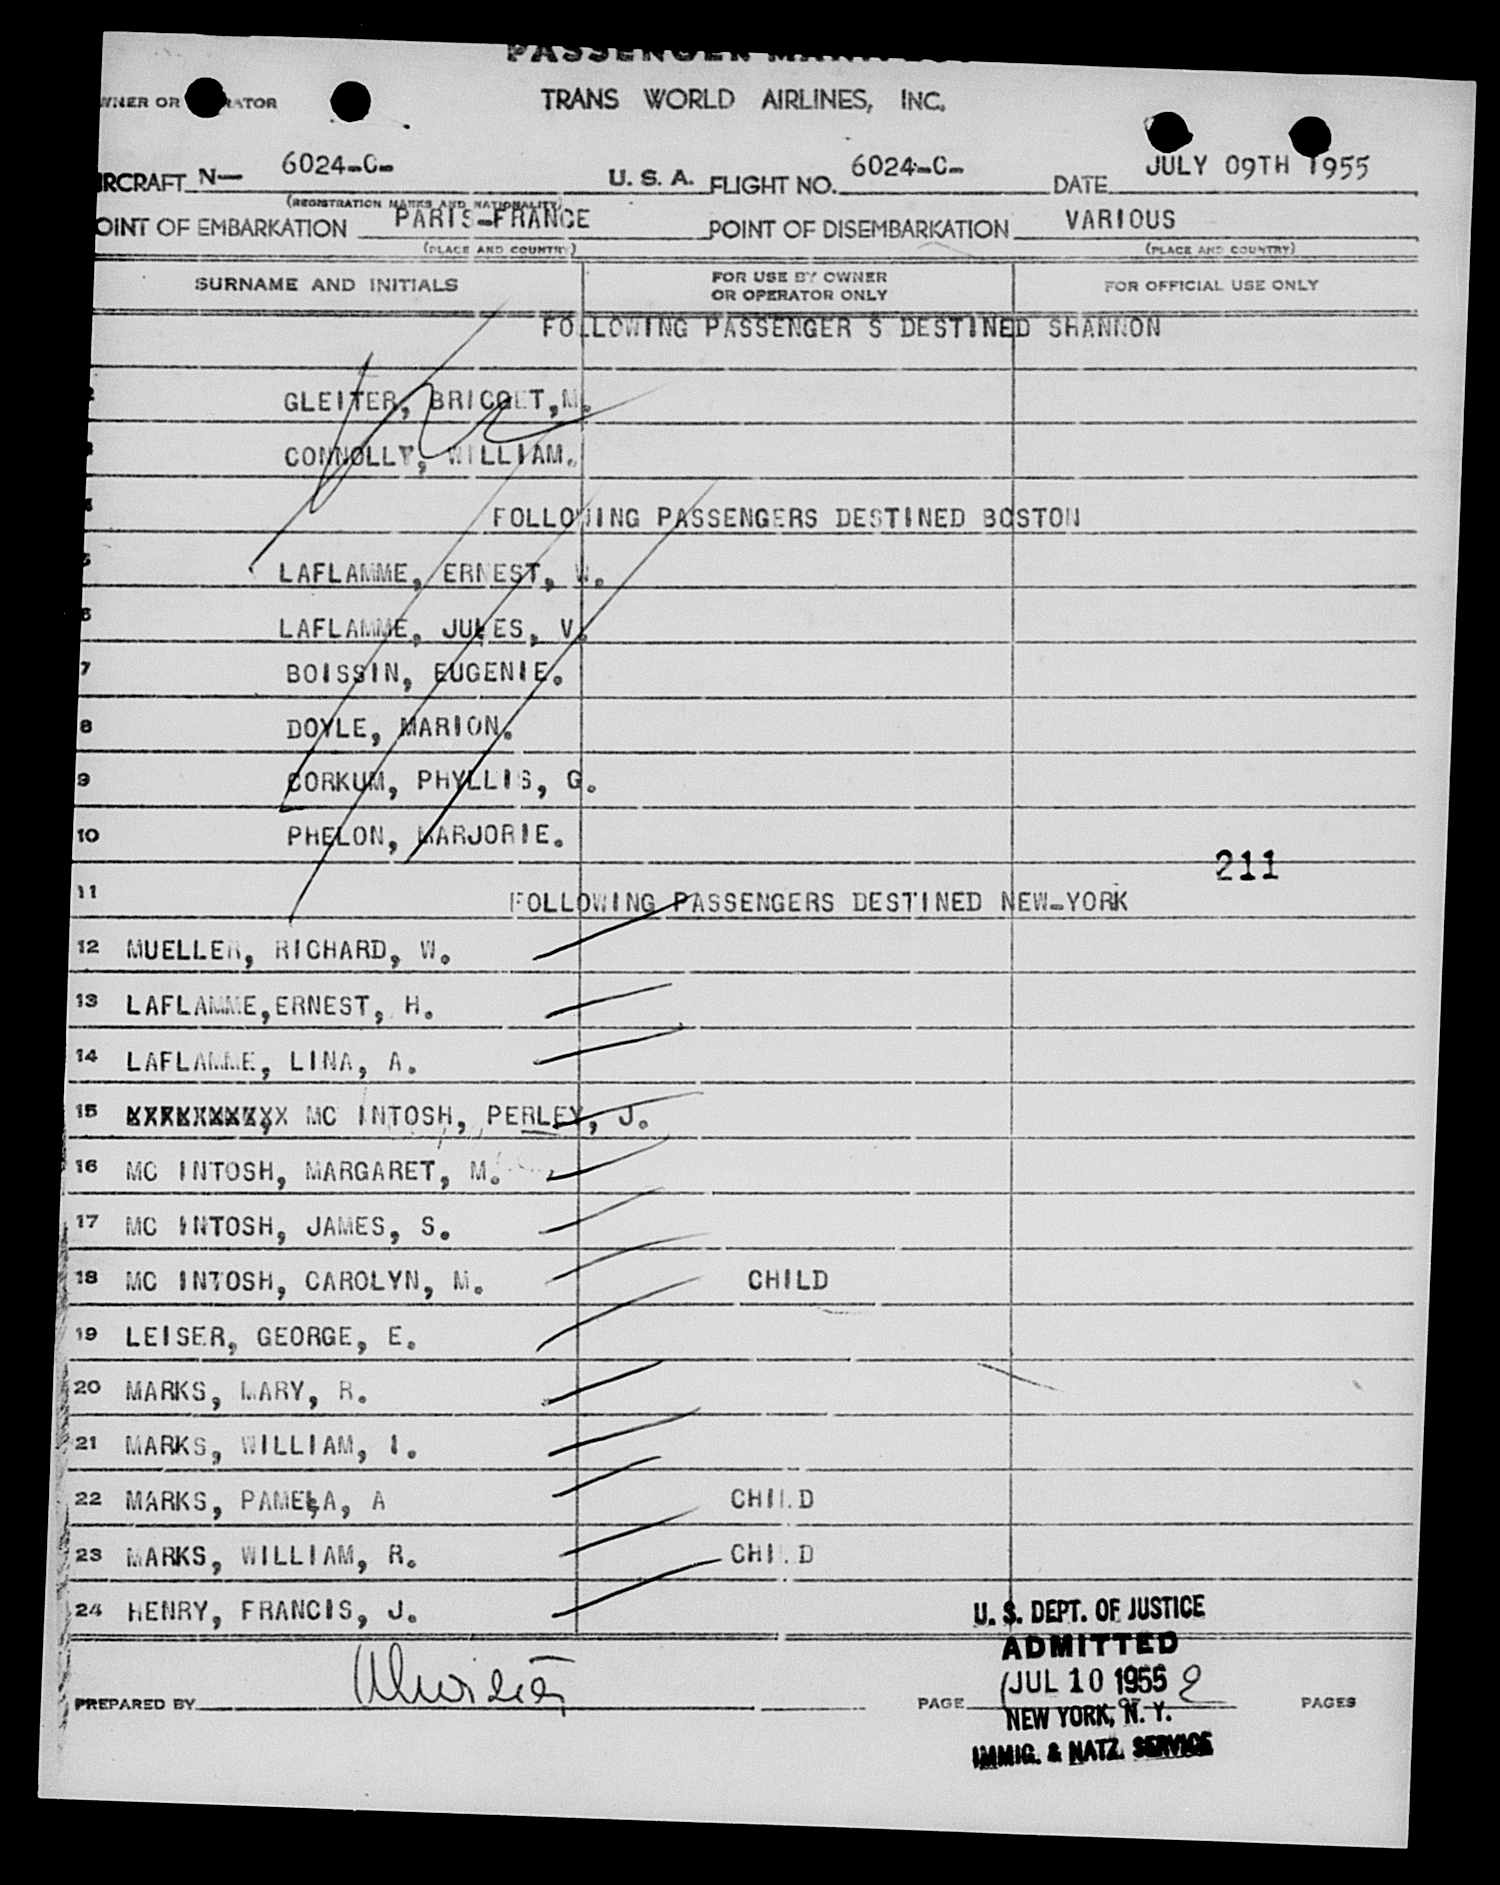 PASSENGER MANIFEST
OWNER OR OPERATOR TRANS WORLD AIRLINES, INC.
AIRCRAFT N— 6024-C- U. S. A. FLIGHT NO. 6024-C- DATE JULY 09TH 1955
(REGISTRATION MARKS AND NATIONALITY)
POINT OF EMBARKATION PARIS-FRANCE POINT OF DISEMBARKATION VARIOUS
(PLACE AND COUNTRY) (PLACE AND COUNTRY)
SURNAME AND INITIALS FOR USE BY OWNER OR OPERATOR ONLY FOR OFFICIAL USE ONLY
FOLLOWING PASSENGER S DESTINED SHANNON
2 GLEITER, BRICQET,M.
3 CONNOLLY, WILLIAM.
4 FOLLOWING PASSENGERS DESTINED BOSTON
5 LAFLAMME, ERNEST, W.
6 LAFLAMME, JULES, V.
7 BOISSIN, EUGENIE.
8 DOYLE, MARION.
9 CORKUM, PHYLLIS, G.
10 PHELON, MARJORIE.
211
11 FOLLOWING PASSENGERS DESTINED NEW-YORK
12 MUELLER, RICHARD, W.
13 LAFLAMME,ERNEST, H.
14 LAFLAMME, LINA, A.
15 MC INTOSH, PERLEY, J.
16 MC INTOSH, MARGARET, M.
17 MC INTOSH, JAMES, S.
18 MC INTOSH, CAROLYN, M. CHILD
19 LEISER, GEORGE, E.
20 MARKS, MARY, R.
21 MARKS, WILLIAM, I.
22 MARKS, PAMELA, A CHILD
23 MARKS, WILLIAM, R. CHILD
24 HENRY, FRANCIS, J.
U. S. DEPT. OF JUSTICE
ADMITTED
JUL 10 1955
PREPARED BY PAGE 1 OF 2 PAGES
NEW YORK, N. Y.
IMMIG. & NATZ. SERVICE